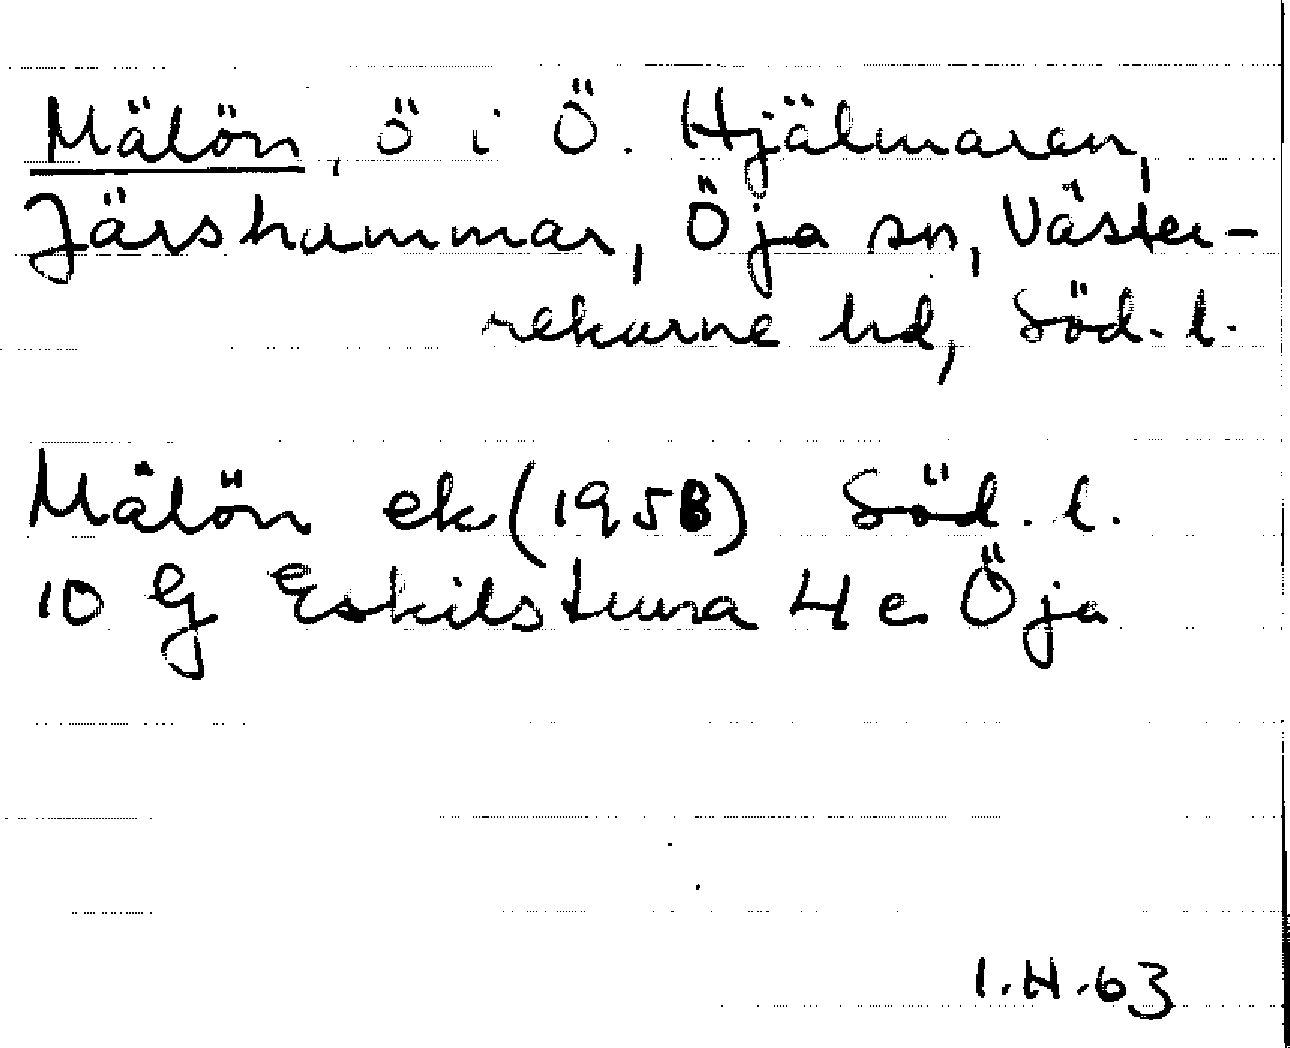 Mälön, ö i Ö. Hjälmaren,
Järshammar, Öja sn, Väster-
rekarne hd, Söd. l.
Mälön ek (1958) Söd. l.
10 G Eskilstuna 4 e Öja
I.H.63